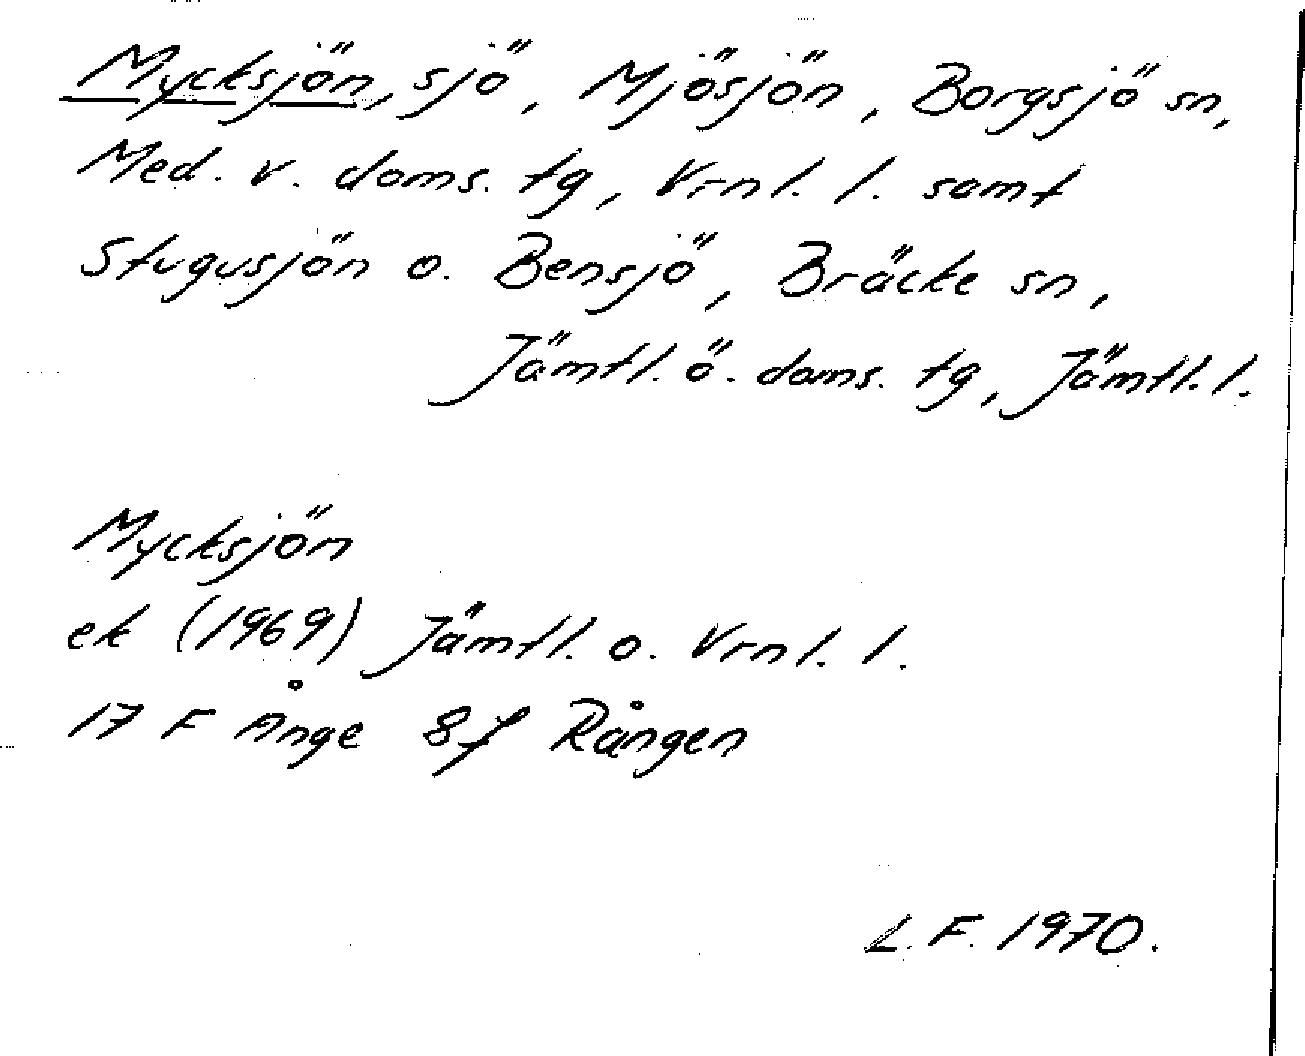 Mycksjön, sjö, Mjösjön, Borgsjö sn,
Med. v. doms. tg, Vrnl. l. samt
Stugusjön o. Bensjö, Bräcke sn,
Jämtl. ö. doms. tg, Jämtl. l.
Mycksjön
ek (1969) Jämtl. o. Vrnl. l.
17 F Ånge 8f Rången
L. F. 1970.